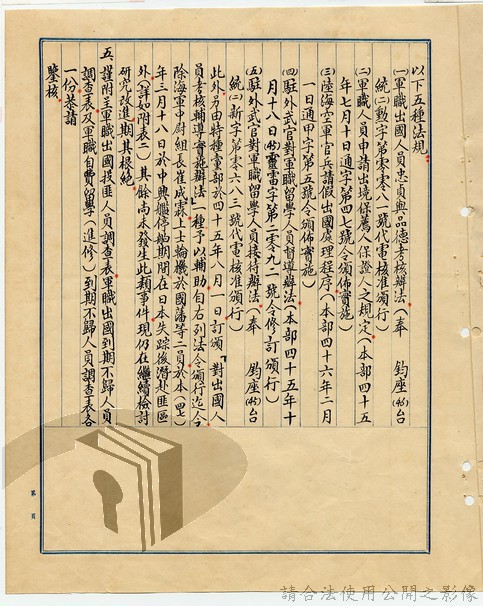 以下五種法規
(一)軍職出國人員忠貞與品德考核辦法(奉 鈞座(45)台
統(二)勳字第零零八一號代電核准頒行)
(二)軍職人員申請出境保薦人保證人之規定(本部四十五
年七月十日通字第四七號令頒佈實施)
(三)陸海空軍官兵請假出國處理程序(本部四十六年二月
一日通甲字第五號令頒佈實施)
(四)駐外武官對軍職留學人員督導辦法(本部四十五年十
月十八日(45)靈雷字第二零九二號令修訂頒行)
(五)駐外武官對軍職留學人員接待辦法(奉 鈞座(45)台
統(二)新字第零六八三號代電核准頒行)
此外另由特種黨部於四十五年八月一日訂頒「對出國人
員考核輔導實施辦法」一種予以輔助自右列法令頒行迄今
除海軍中尉組長崔成霖上士輪機於國藩等二員於本(四七)
年三月十八日於中興艦停舶期間在日本失踪後潛赴匪區
外(詳如附表二)其餘尚未發生此類事件現仍在繼續檢討
研究改進期其根絕
五、謹附呈軍職出國投匪人員調查表軍職出國到期不歸人員
調查表及軍職自費留學(進修)到期不歸人員調查表各
一份恭請
鑒核
第 頁
請合法使用公開之影像